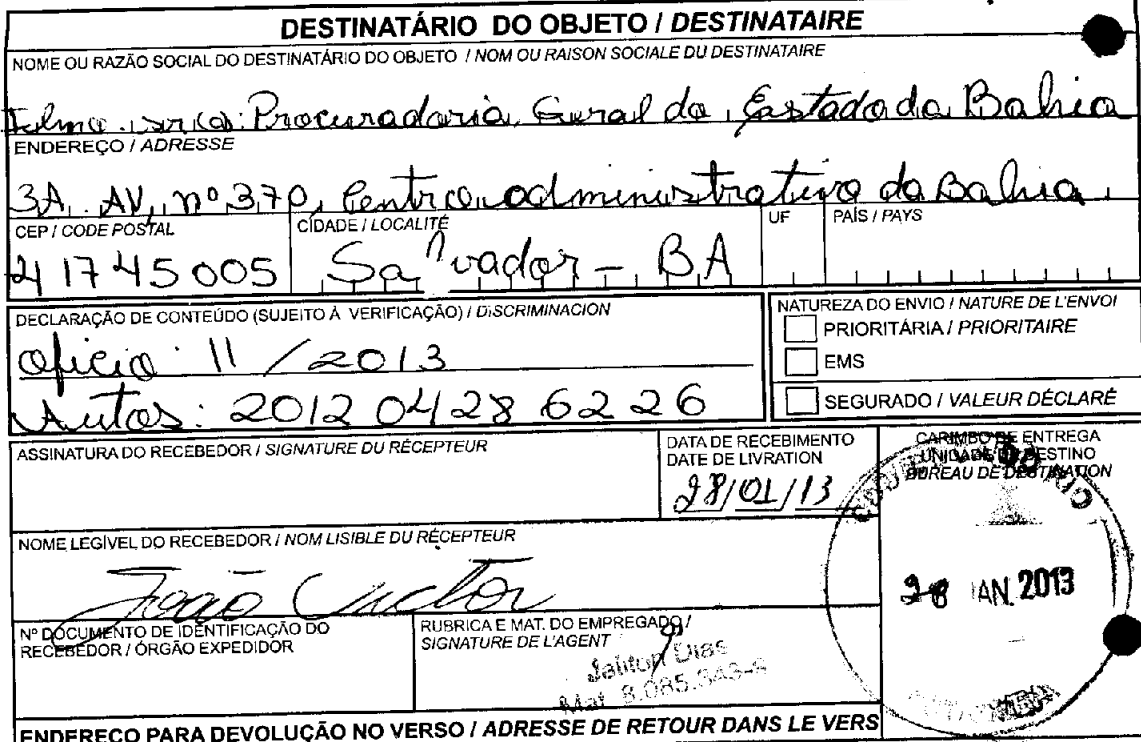 DESTINATÁRIO DO OBJETO / DESTINATAIRE
NOME OU RAZÃO SOCIAL DO DESTINATÁRIO DO OBJETO / NOM OU RAISON SOCIALE DU DESTINATAIRE
Procuradoria Geral do Estado da Bahia
ENDEREÇO / ADRESSE
3A. AV, nº 370, Centro administrativo da Bahia
CEP / CODE POSTAL CIDADE / LOCALITÉ UF PAÍS / PAYS
41745005 Salvador - BA
DECLARAÇÃO DE CONTEÚDO (SUJEITO À VERIFICAÇÃO) / DISCRIMINACION
Oficio: 11 / 2013
Autos: 2012 04 28 62 26
NATUREZA DO ENVIO / NATURE DE L'ENVOI
PRIORITÁRIA / PRIORITAIRE
EMS
SEGURADO / VALEUR DÉCLARÉ
ASSINATURA DO RECEBEDOR / SIGNATURE DU RÉCEPTEUR
DATA DE RECEBIMENTO
DATE DE LIVRATION
28/01/13
CARIMBO DE ENTREGA
UNIDADE DE DESTINO
BUREAU DE DESTINATION
28 JAN. 2013
NOME LEGÍVEL DO RECEBEDOR / NOM LISIBLE DU RÉCEPTEUR
João Victor
Nº DOCUMENTO DE IDENTIFICAÇÃO DO
RECEBEDOR / ÓRGÃO EXPEDIDOR
RUBRICA E MAT. DO EMPREGADO /
SIGNATURE DE L'AGENT
Jailton Dias
Mat. 8.085.343-8
ENDEREÇO PARA DEVOLUÇÃO NO VERSO / ADRESSE DE RETOUR DANS LE VERS